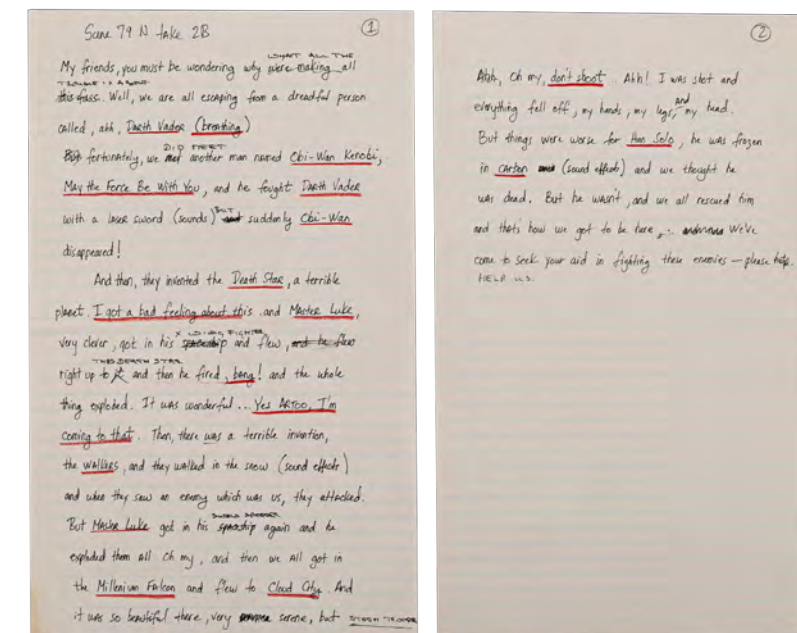 Scene 79 N take 2B
1
My friends, you must be wondering why were making all
WHAT ALL THE
this fuss. Well, we are all escaping from a dreadful person
TROUBLE IS ABOUT
called, ahh, Darth Vader (breathing)
But fortunately, we met another man named Obi-Wan Kenobi,
DID MEET
May the Force Be With You, and he fought Darth Vader
with a laser sword (sounds) and suddenly Obi-Wan
BUT
disappeared!
And then, they invented the Death Star, a terrible
planet. I got a bad feeling about this. and Master Luke,
very clever, got in his spaceship and flew, and he flew
X WING FIGHTER
right up to it and then he fired, bang! and the whole
THIS DEATH STAR
thing exploded. It was wonderful... Yes ARTOO, I'm
coming to that. Then, there was a terrible invention,
the WALKERS, and they walked in the snow (sound effects)
and when they saw an enemy which was us, they attacked.
But Master Luke got in his spaceship again and he
exploded them all oh my, and then we all got in
the Millenium Falcon and flew to Cloud City. And
it was so beautiful there, very serene, but STORM TROOPER
2
Ahh, Oh my, don't shoot. Ahh! I was shot and
everything fell off, my hands, my legs, and my head.
But things were worse for Han Solo, he was frozen
in carbon (sound effects) and we thought he
was dead. But he wasn't, and we all rescued him
and that's how we got to be here... We've
come to seek your aid in fighting these enemies — please help.
HELP US.